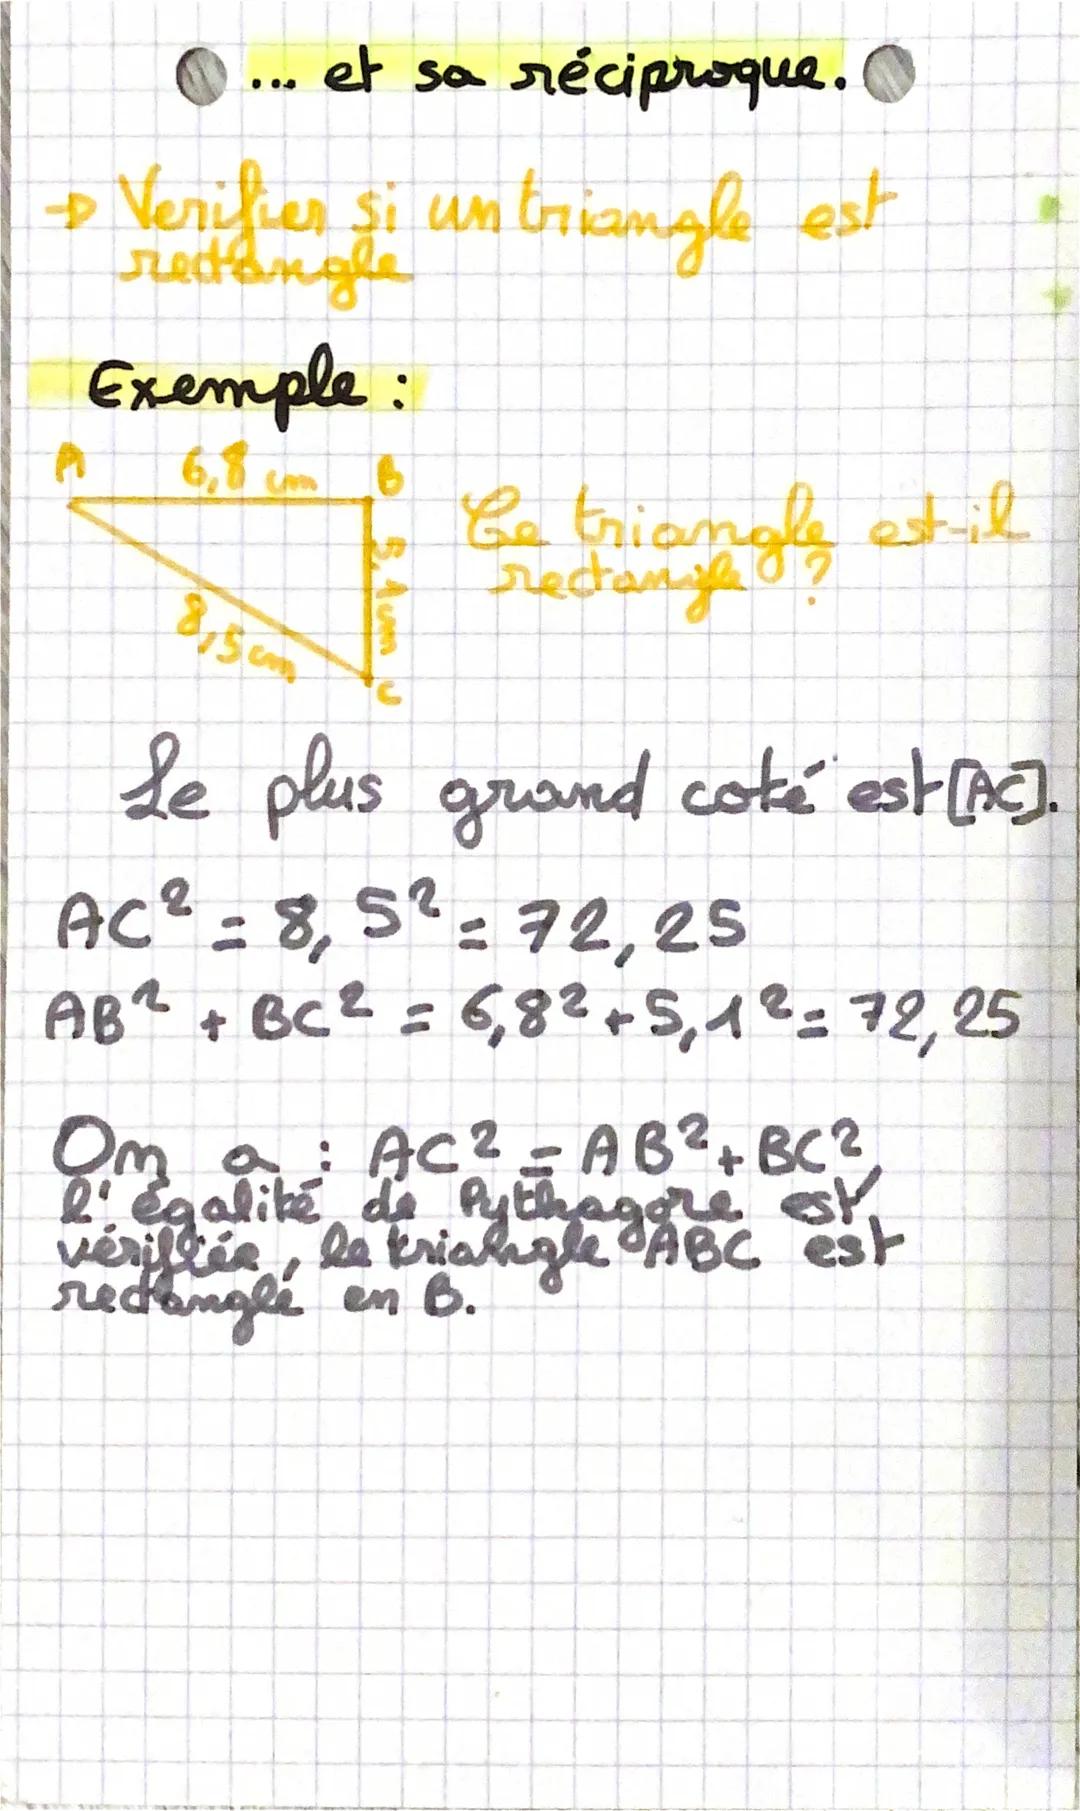 ... et sa réciproque.
→ Verifier si un triangle est
rectangle
Exemple :
A 6,8 cm B
5,1 cm
8,5 cm
C
Ce triangle est-il
rectangle ?
Le plus grand coté est [AC].
AC² = 8,5² = 72,25
AB² + BC² = 6,8² + 5,1² = 72,25
On a : AC² = AB² + BC²,
l'égalité de Pythagore est
vérifiée, le triangle ABC est
rectangle en B.